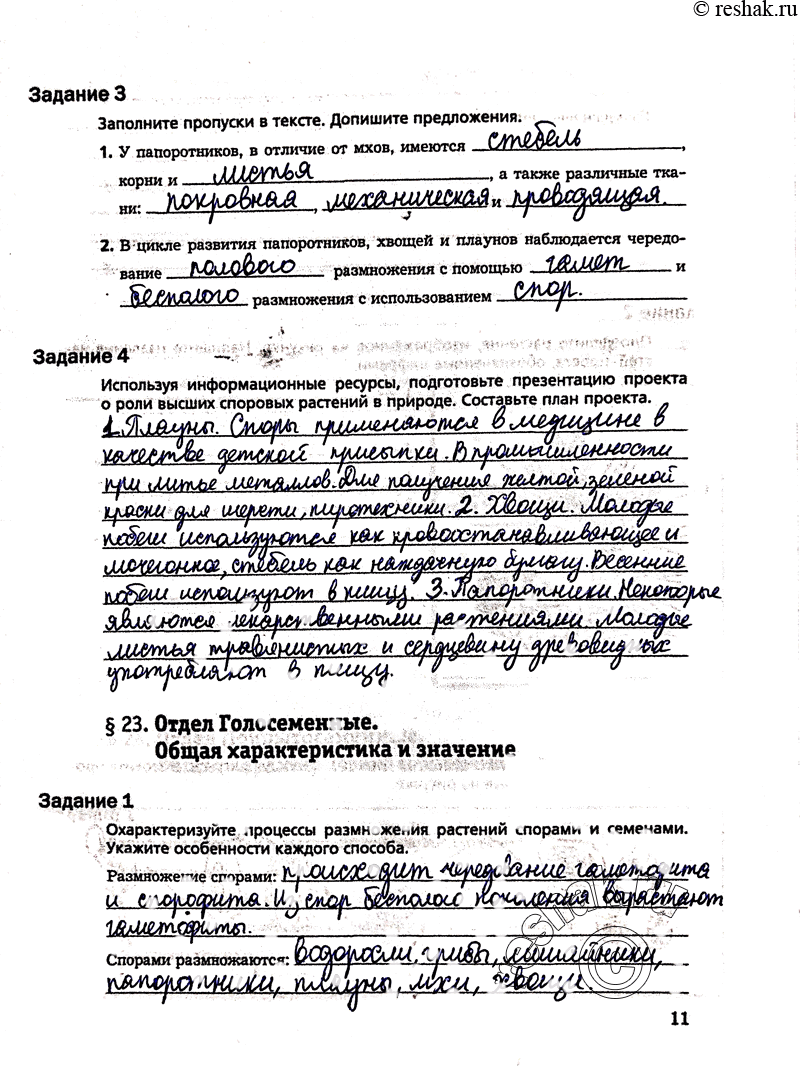 © reshak.ru
Задание 3
Заполните пропуски в тексте. Допишите предложения.
1. У папоротников, в отличие от мхов, имеются стебель,
корни и листья, а также различные тка-
ни: покровная, механическая и проводящая.
2. В цикле развития папоротников, хвощей и плаунов наблюдается чередо-
вание полового размножения с помощью гамет и
бесполого размножения с использованием спор.
Задание 4
Используя информационные ресурсы, подготовьте презентацию проекта
о роли высших споровых растений в природе. Составьте план проекта.
1. Плауны. Споры применяются в медицине в
качестве детской присыпки. В промышленности
при литье металлов. Для получения желтой, зеленой
краски для шерсти, пиротехники. 2. Хвощи. Молодые
побеги используются как кровоостанавливающее и
мочегонное, стебель как наждачную бумагу. Весенние
побеги используют в пищу. 3. Папоротники. Некоторые
являются лекарственными растениями. Молодые
листья травянистых и сердцевину древовидных
употребляют в пищу.
§ 23. Отдел Голосеменные.
Общая характеристика и значение
Задание 1
Охарактеризуйте процессы размножения растений спорами и семенами.
Укажите особенности каждого способа.
Размножение спорами: происходит чередование гаметофита
и спорофита. Из спор бесполого поколения вырастают
гаметофиты.
Спорами размножаются: водоросли, грибы, лишайники,
папоротники, плауны, мхи, хвощи.
reshak.ru
©
11